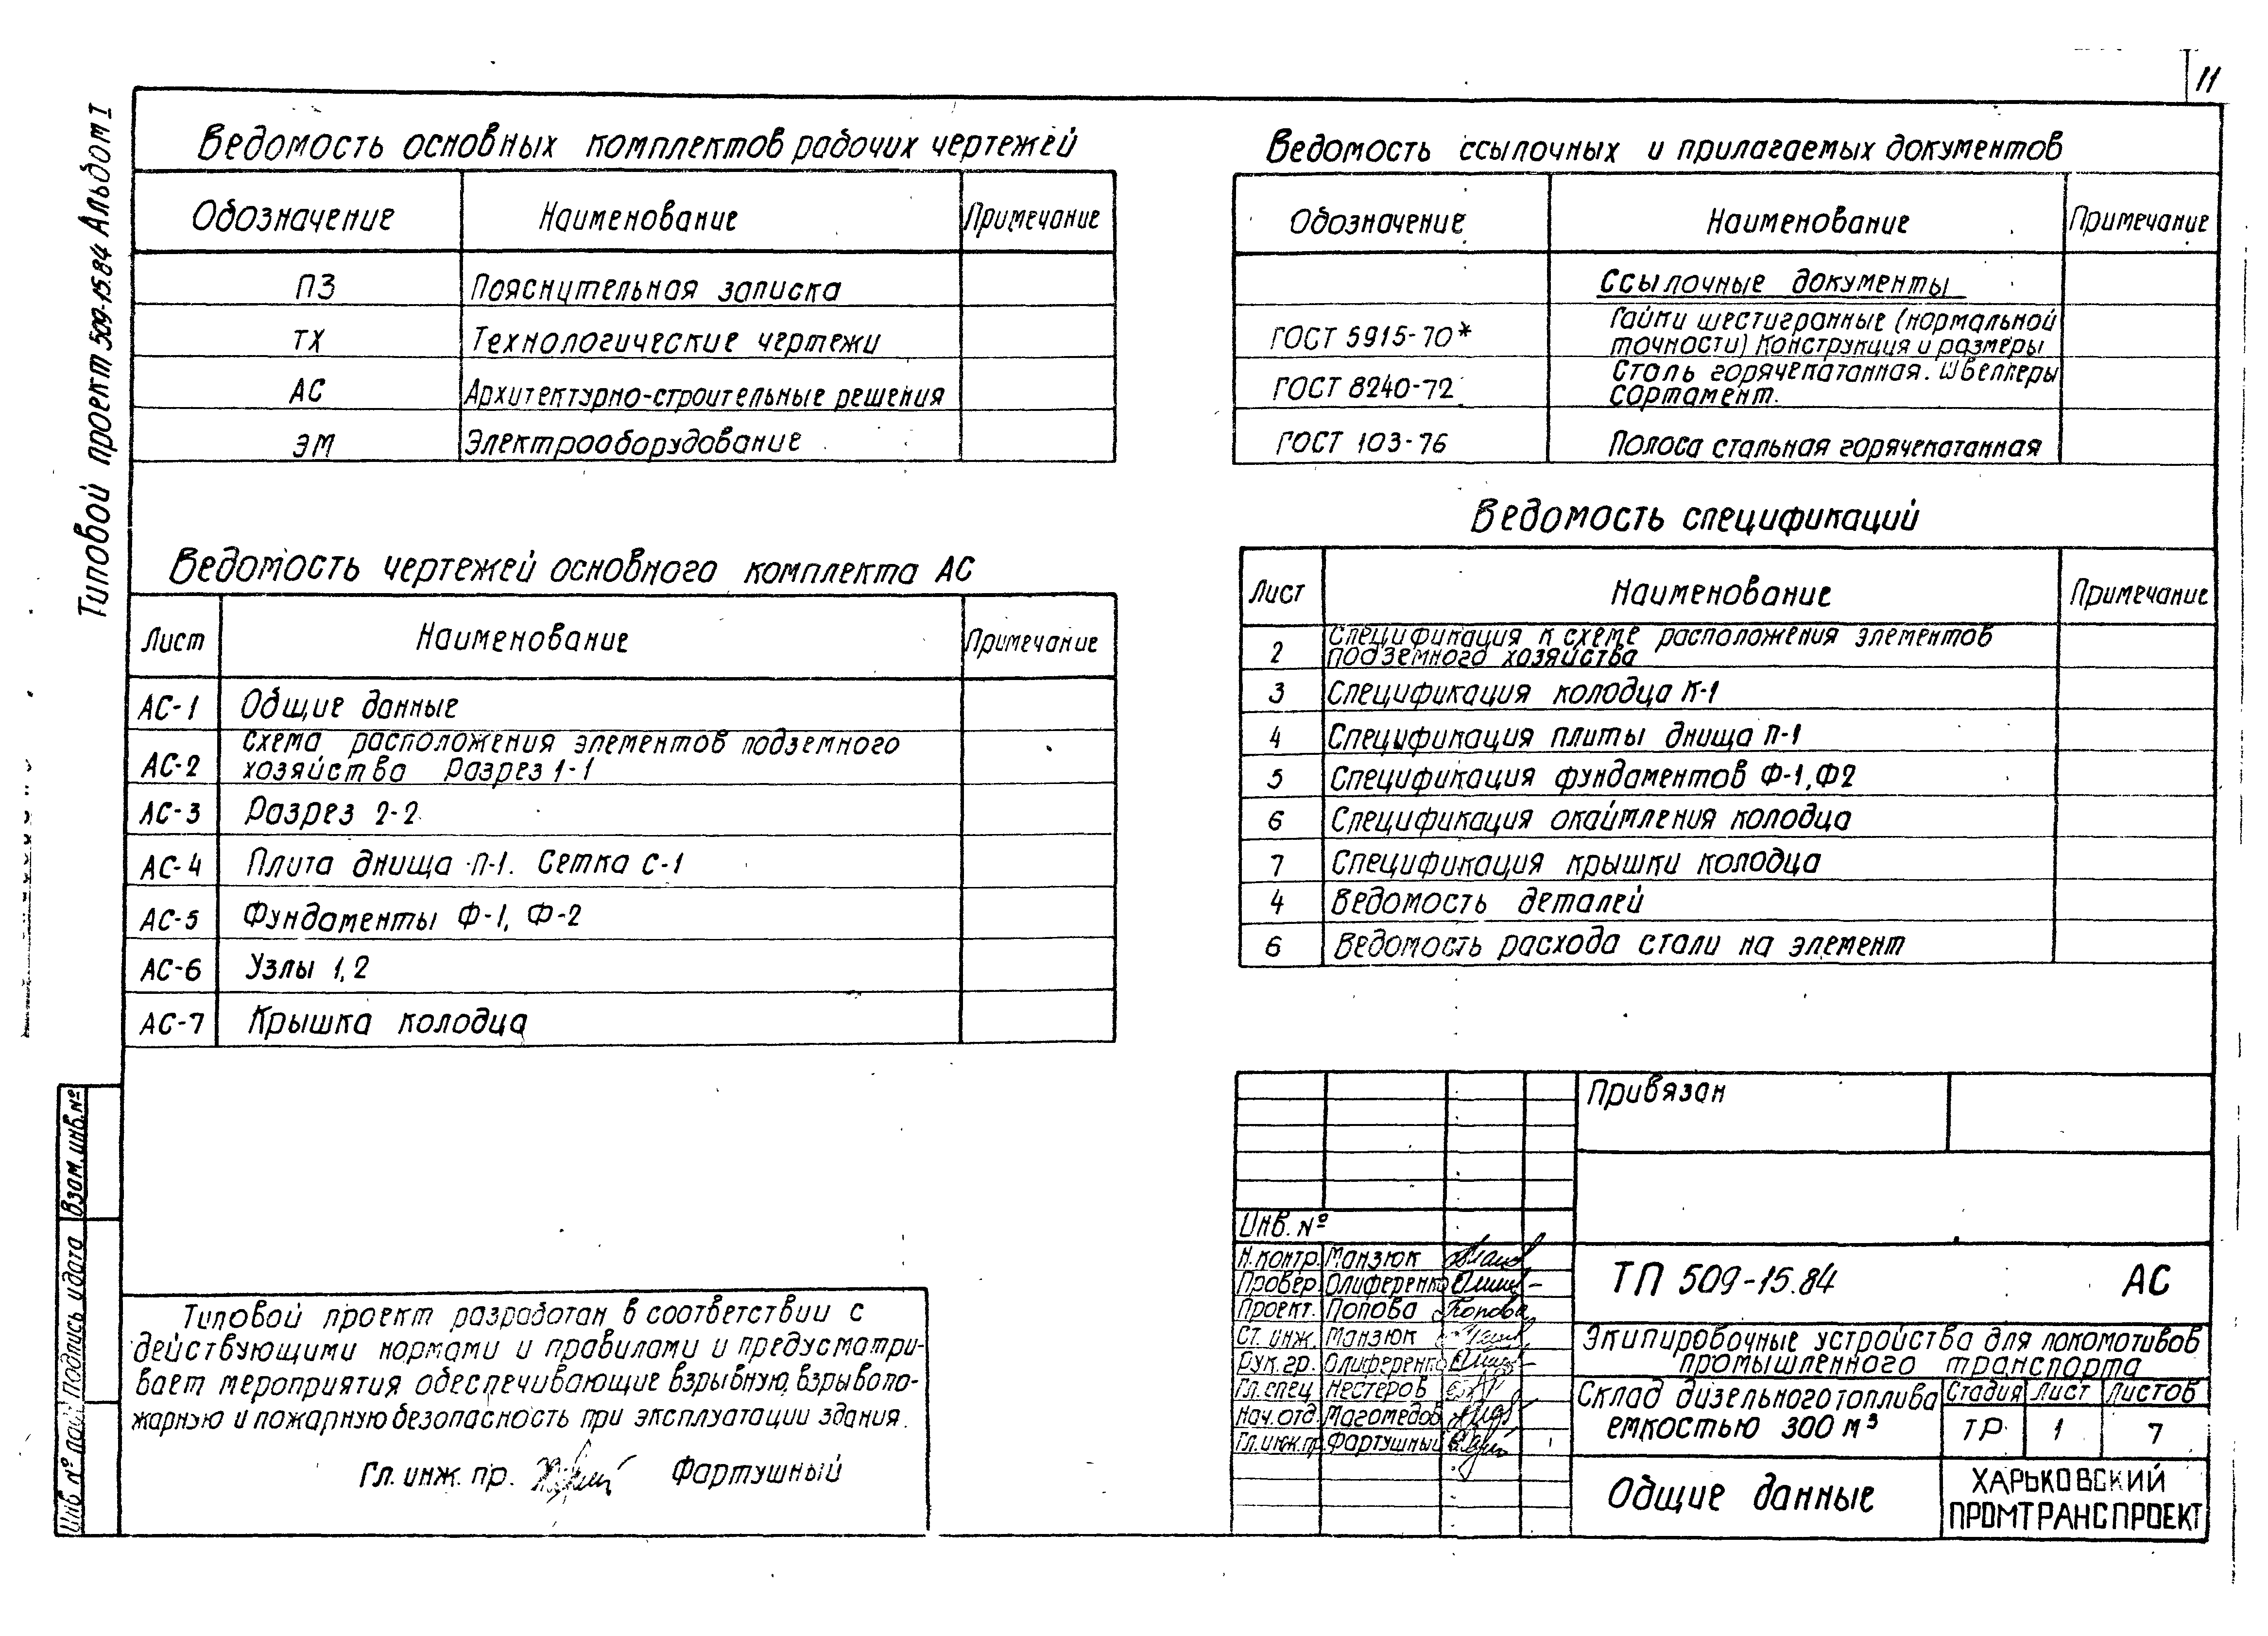 11
Типовой проект 509-15.84 Альбом I
Ведомость основных комплектов рабочих чертежей
Обозначение Наименование Примечание
ПЗ Пояснительная записка
ТХ Технологические чертежи
АС Архитектурно-строительные решения
ЭМ Электрооборудование
Ведомость чертежей основного комплекта АС
Лист Наименование Примечание
АС-1 Общие данные
АС-2 Схема расположения элементов подземного
хозяйства Разрез 1-1
АС-3 Разрез 2-2
АС-4 Плита днища П-1. Сетка С-1
АС-5 Фундаменты Ф-1, Ф-2
АС-6 Узлы 1,2
АС-7 Крышка колодца
Ведомость ссылочных и прилагаемых документов
Обозначение Наименование Примечание
Ссылочные документы
ГОСТ 5915-70* Гайки шестигранные (нормальной
точности) Конструкция и размеры
ГОСТ 8240-72 Сталь горячекатанная. Швеллеры
Сортамент.
ГОСТ 103-76 Полоса стальная горячекатанная
Ведомость спецификаций
Лист Наименование Примечание
2 Спецификация к схеме расположения элементов
подземного хозяйства
3 Спецификация колодца К-1
4 Спецификация плиты днища П-1
5 Спецификация фундаментов Ф-1, Ф2
6 Спецификация окаймления колодца
7 Спецификация крышки колодца
4 Ведомость деталей
6 Ведомость расхода стали на элемент
Типовой проект разработан в соответствии с
действующими нормами и правилами и предусматри-
вает мероприятия обеспечивающие взрывную, взрывопо-
жарную и пожарную безопасность при эксплуатации здания.
Гл. инж. пр. Фартушный
Взам. инв. №
Подпись и дата
Инв № подл
Привязан
Инв. №
Н.контр. Манзюк
Провер. Олиференко
Проект. Попова Попова
Ст. инж. Манзюк
Рук. гр. Олиференко
Гл. спец Нестеров
Нач. отд. Магомедов
Гл. инж. пр. Фартушный
ТП 509-15.84 АС
Экипировочные устройства для локомотивов
промышленного транспорта
Склад дизельного топлива
емкостью 300 м³
Стадия Лист Листов
ТР 1 7
Общие данные
ХАРЬКОВСКИЙ
ПРОМТРАНСПРОЕКТ